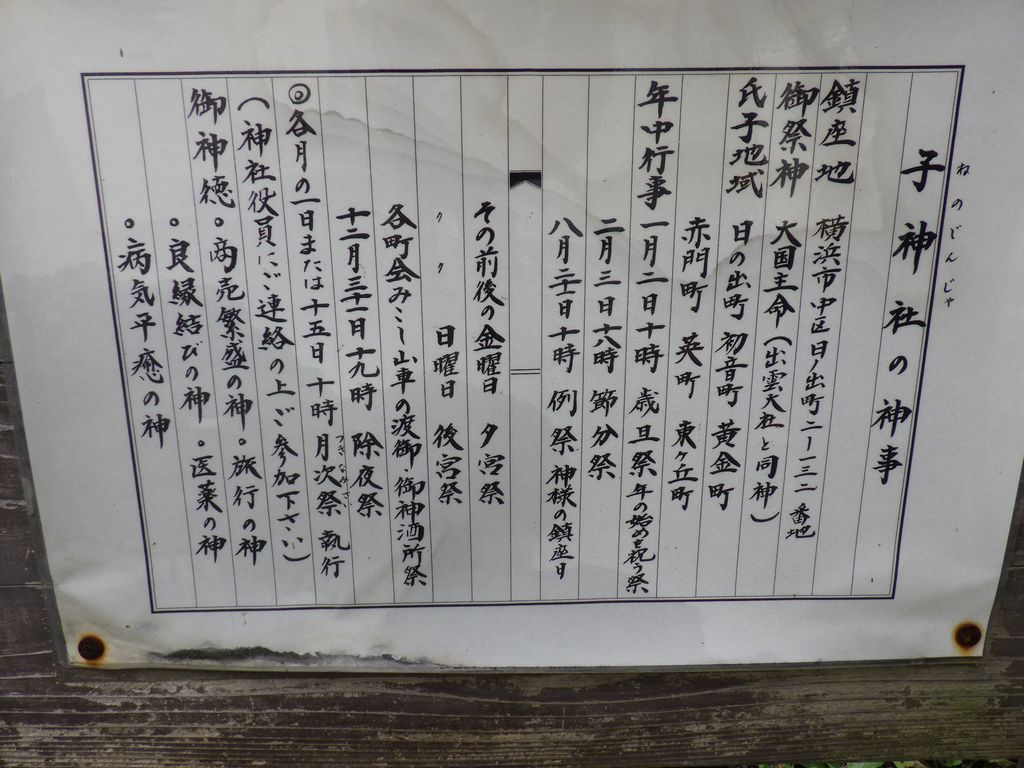 ねのじんじゃ
子神社の神事
鎮座地 横浜市中区日ノ出町二ー一三二番地
御祭神 大国主命(出雲大社と同神)
氏子地域 日の出町 初音町 黄金町
赤門町 英町 東ヶ丘町
年中行事 一月二日十時 歳旦祭 年の始めを祝う祭
二月三日十八時 節分祭
八月二十日十時 例祭 神様の鎮座日
その前後の金曜日 夕宮祭
〃 〃 日曜日 後宮祭
各町会みこし山車の渡御・御神酒所祭
十二月三十一日十九時 除夜祭
つきなみさい
◎各月の一日または十五日 十時 月次祭 執行
(神社役員にご連絡の上ご参加下さい)
御神徳 ・商売繁盛の神・旅行の神
・良縁結びの神・医薬の神
・病気平癒の神